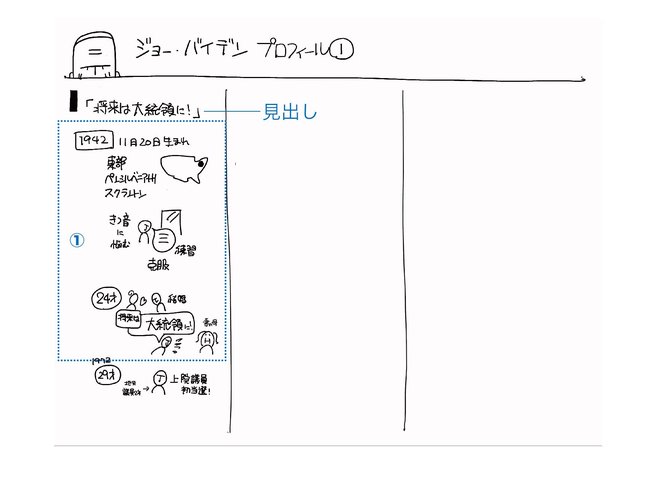 ジョー・バイデン プロフィール①
「将来は大統領に!」
見出し
1942 11月20日生まれ
東部
ペンシルベニア州
スクラントン
①
きつ音
に
悩む
練習
克服
24才
結婚
将来は
大統領に!
妻の母
1972
29才
地方
議員から
→
上院議員
初当選!